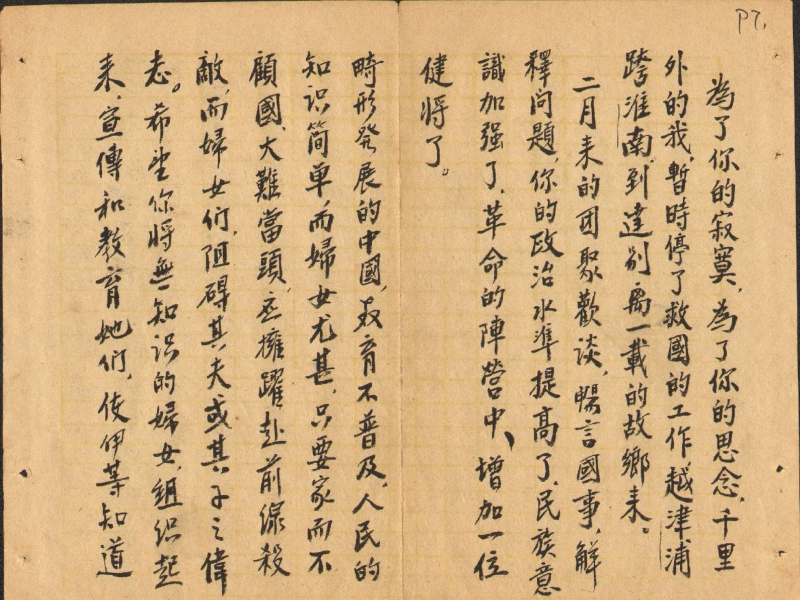 P7.
為了你的寂寞，為了你的思念，千里
外的我，暫時停了救國的工作，越津浦
跨淮南，到達別离一載的故鄉来。
二月来的团聚歡談，暢言國事，解
釋问題，你的政治水準提高了，民族意
識加强了，革命的陣營中，增加一位
健將了。
畸形發展的中國，教育不普及，人民的
知识简单，而婦女尤甚，只要家而不
顧國，大難當頭，应擁躍赴前線殺
敵，而婦女们，阻碍其夫或其子之偉
志。希望你將無知识的婦女，组织起
来，宣傳和教育她们，使伊等知道